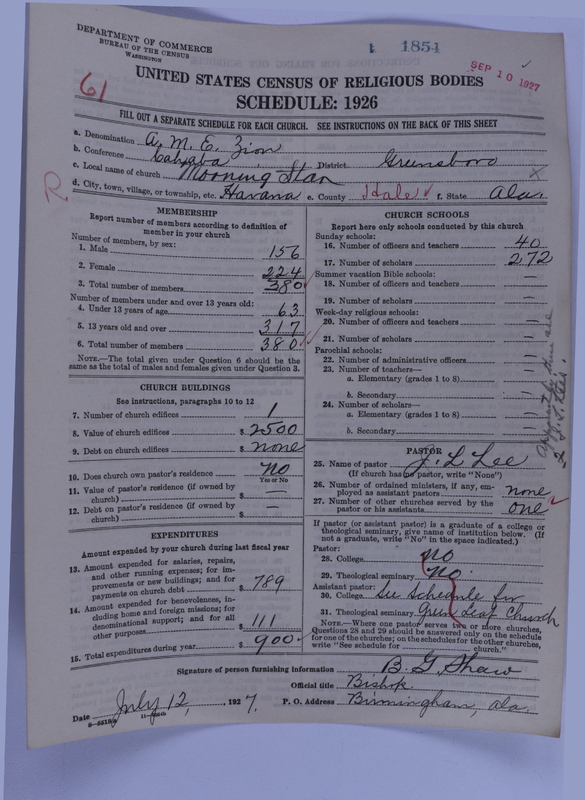 DEPARTMENT OF COMMERCE
BUREAU OF THE CENSUS
WASHINGTON
1 1854
SEP 10 1927
61
UNITED STATES CENSUS OF RELIGIOUS BODIES
SCHEDULE: 1926
FILL OUT A SEPARATE SCHEDULE FOR EACH CHURCH. SEE INSTRUCTIONS ON THE BACK OF THIS SHEET
a. Denomination A. M. E. Zion
b. Conference Cahaba District Greensboro
c. Local name of church Morning Star
R
d. City, town, village, or township, etc. Havana e. County Hale f. State Ala.
MEMBERSHIP
Report number of members according to definition of
member in your church
Number of members, by sex:
1. Male 156
2. Female 224
3. Total number of members 380
Number of members under and over 13 years old:
4. Under 13 years of age 63
5. 13 years old and over 317
6. Total number of members 380
NOTE.—The total given under Question 6 should be the
same as the total of males and females given under Question 3.
CHURCH BUILDINGS
See instructions, paragraphs 10 to 12
7. Number of church edifices 1
8. Value of church edifices $ 2500
9. Debt on church edifices $ none
10. Does church own pastor's residence No
Yes or No
11. Value of pastor's residence (if owned by
church) $ —
12. Debt on pastor's residence (if owned by
church) $ —
EXPENDITURES
Amount expended by your church during last fiscal year
13. Amount expended for salaries, repairs,
and other running expenses; for im-
provements or new buildings; and for
payments on church debt $ 789
14. Amount expended for benevolences, in-
cluding home and foreign missions; for
denominational support; and for all
other purposes $ 111
15. Total expenditures during year $ 900
CHURCH SCHOOLS
Report here only schools conducted by this church
Sunday schools:
16. Number of officers and teachers 40
17. Number of scholars 272
Summer vacation Bible schools:
18. Number of officers and teachers —
19. Number of scholars —
Week-day religious schools:
20. Number of officers and teachers —
21. Number of scholars —
Parochial schools:
22. Number of administrative officers —
23. Number of teachers—
a. Elementary (grades 1 to 8) —
b. Secondary —
24. Number of scholars—
a. Elementary (grades 1 to 8) —
b. Secondary —
PASTOR
25. Name of pastor J. L. Lee
(If church has no pastor, write "None")
26. Number of ordained ministers, if any, em-
ployed as assistant pastors none
27. Number of other churches served by the
pastor or his assistants one
If pastor (or assistant pastor) is a graduate of a college or
theological seminary, give name of institution below. (If
not a graduate, write "No" in the space indicated.)
Pastor:
28. College No
29. Theological seminary No
Assistant pastor:
30. College See Schedule for
31. Theological seminary Green Leaf Church
NOTE.—Where one pastor serves two or more churches,
Questions 28 and 29 should be answered only on the schedule
for one of the churches; on the schedules for the other churches,
write "See schedule for church."
Signature of person furnishing information B. G. Shaw
Official title Bishop
Date July 12, 1927. P. O. Address Birmingham, Ala.